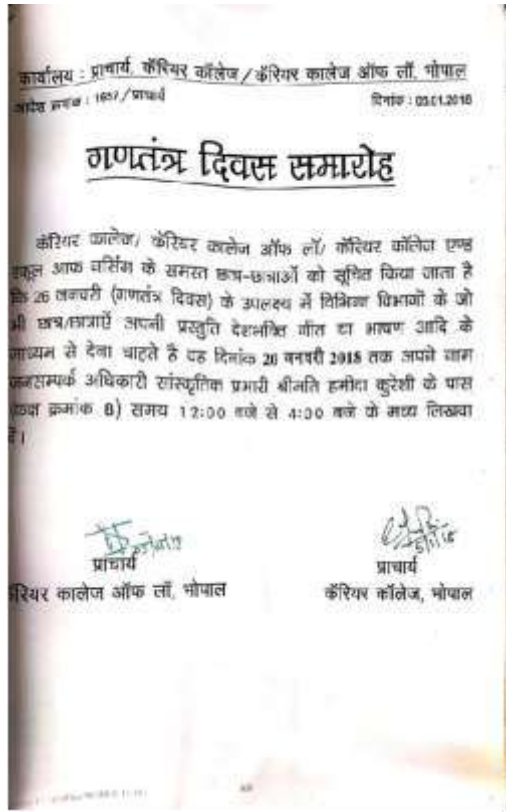 कार्यालय : प्राचार्य, कॅरियर कॉलेज/कॅरियर कालेज ऑफ लॉ, भोपाल
आदेश क्रमांक : 1657/प्राचार्य दिनांक : 05.01.2018
गणतंत्र दिवस समारोह
कॅरियर कालेज/ कॅरियर कालेज ऑफ लॉ/ कॅरियर कॉलेज एण्ड
स्कूल आफ नर्सिंग के समस्त छात्र-छात्राओं को सूचित किया जाता है
कि 26 जनवरी (गणतंत्र दिवस) के उपलक्ष्य में विभिन्न विभागों के जो
भी छात्र/छात्राऐं अपनी प्रस्तुति देशभक्ति गीत या भाषण आदि के
माध्यम से देना चाहते है वह दिनांक 20 जनवरी 2018 तक अपने नाम
जनसम्पर्क अधिकारी सांस्कृतिक प्रभारी श्रीमति हमीदा कुरेशी के पास
(कक्ष क्रमांक 8) समय 12:00 बजे से 4:00 बजे के मध्य लिखवा
दें।
प्राचार्य प्राचार्य
रियर कालेज ऑफ लॉ, भोपाल कॅरियर कॉलेज, भोपाल